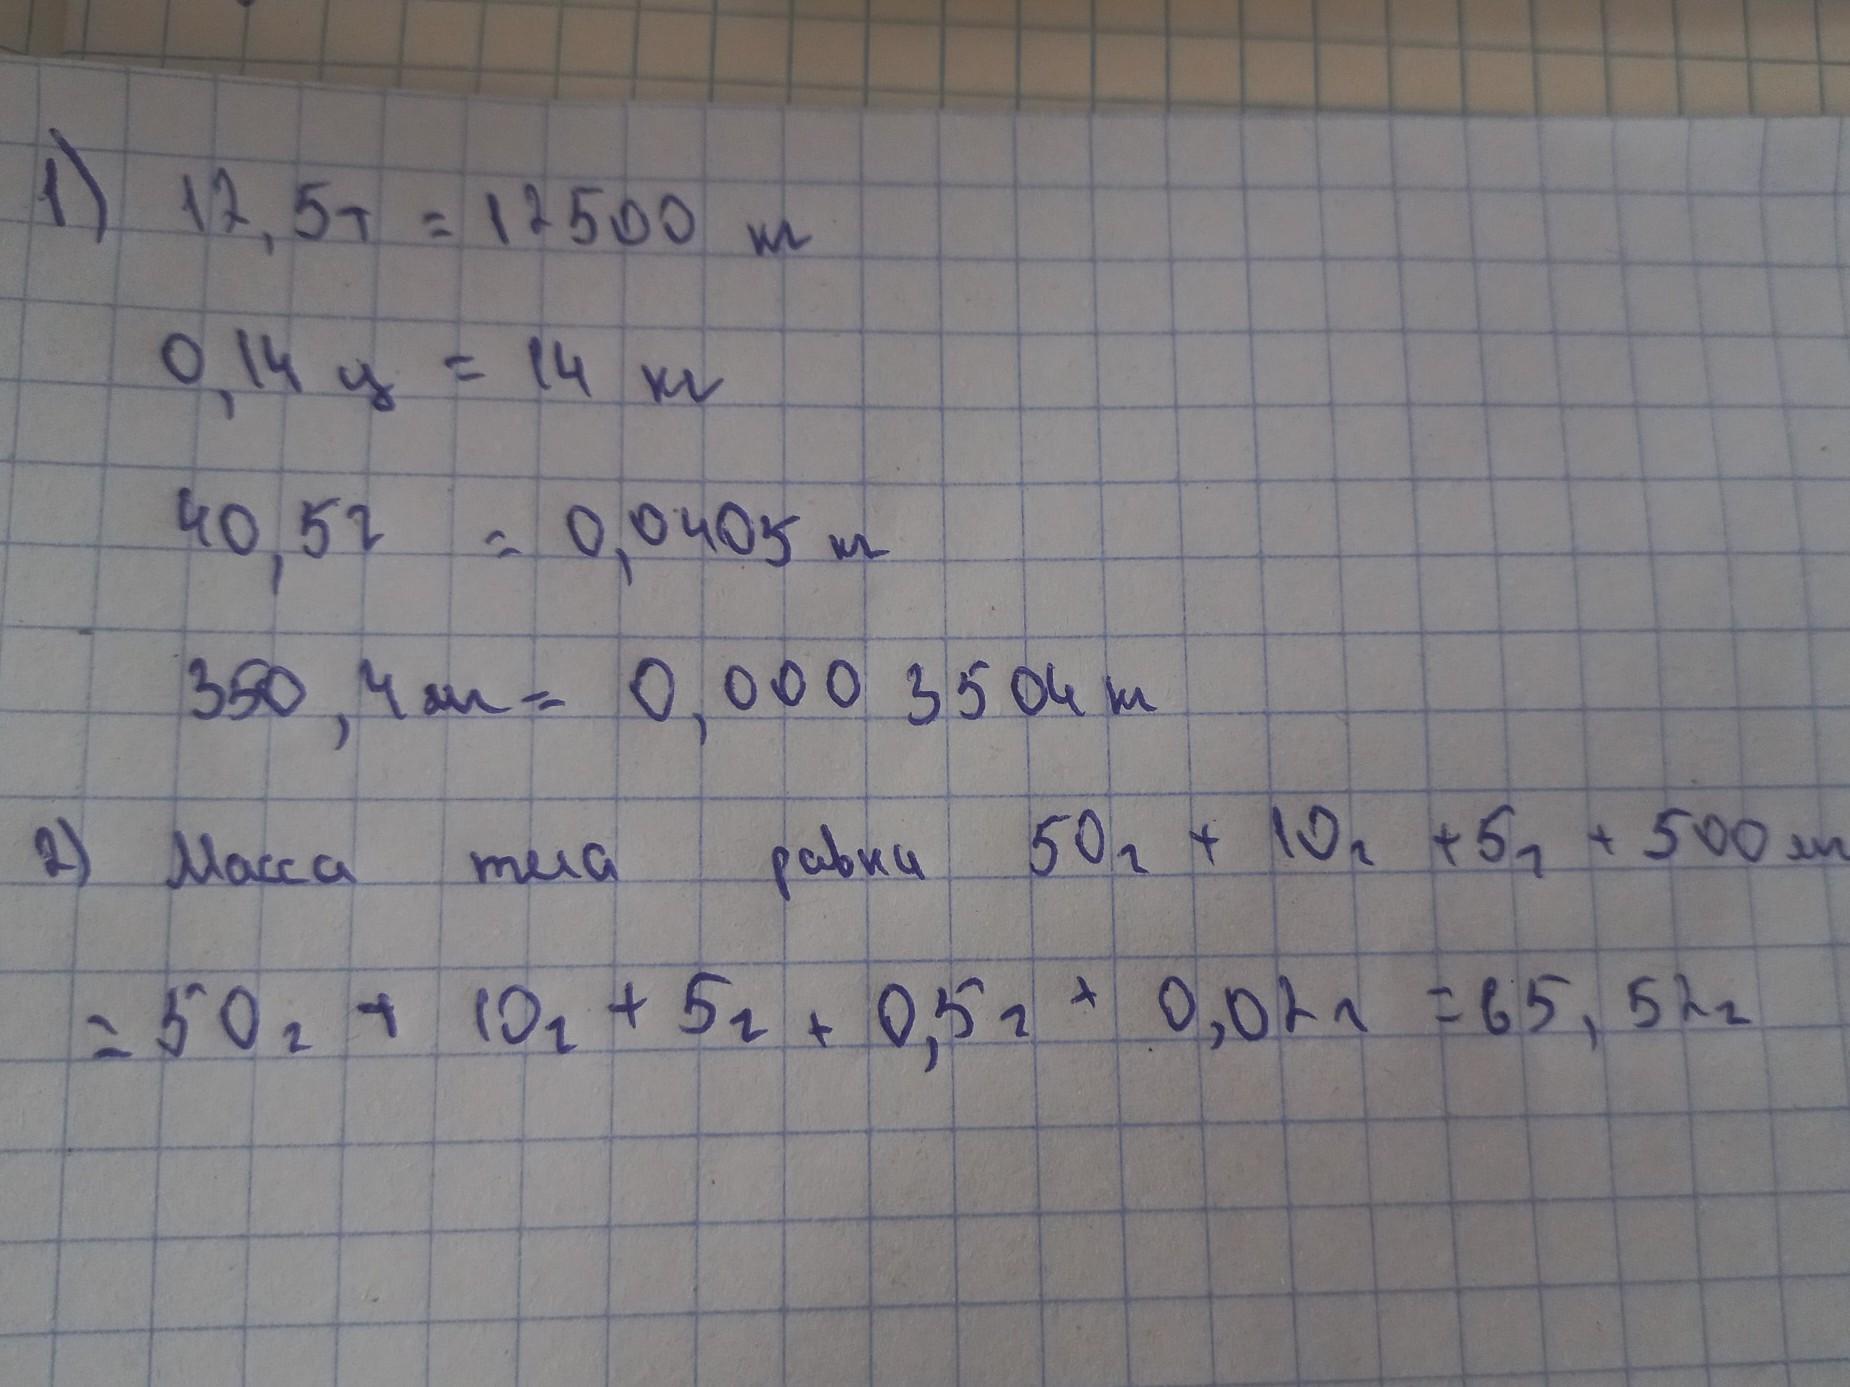 1) 12,5т = 12500 кг
0,14 ц = 14 кг
40,5г = 0,0405 кг
350,4 мг = 0,000 3504 кг
2) Масса тела равна 50г + 10г + 5г + 500 мг
= 50г + 10г + 5г + 0,5г + 0,02г = 65,52г